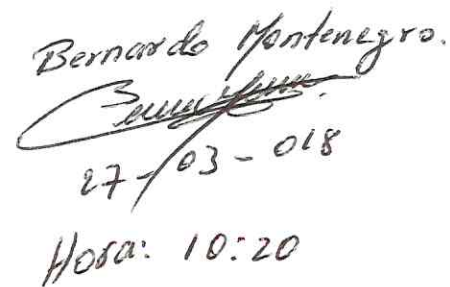 Bernardo Montenegro.
27-03-018
Hora: 10:20